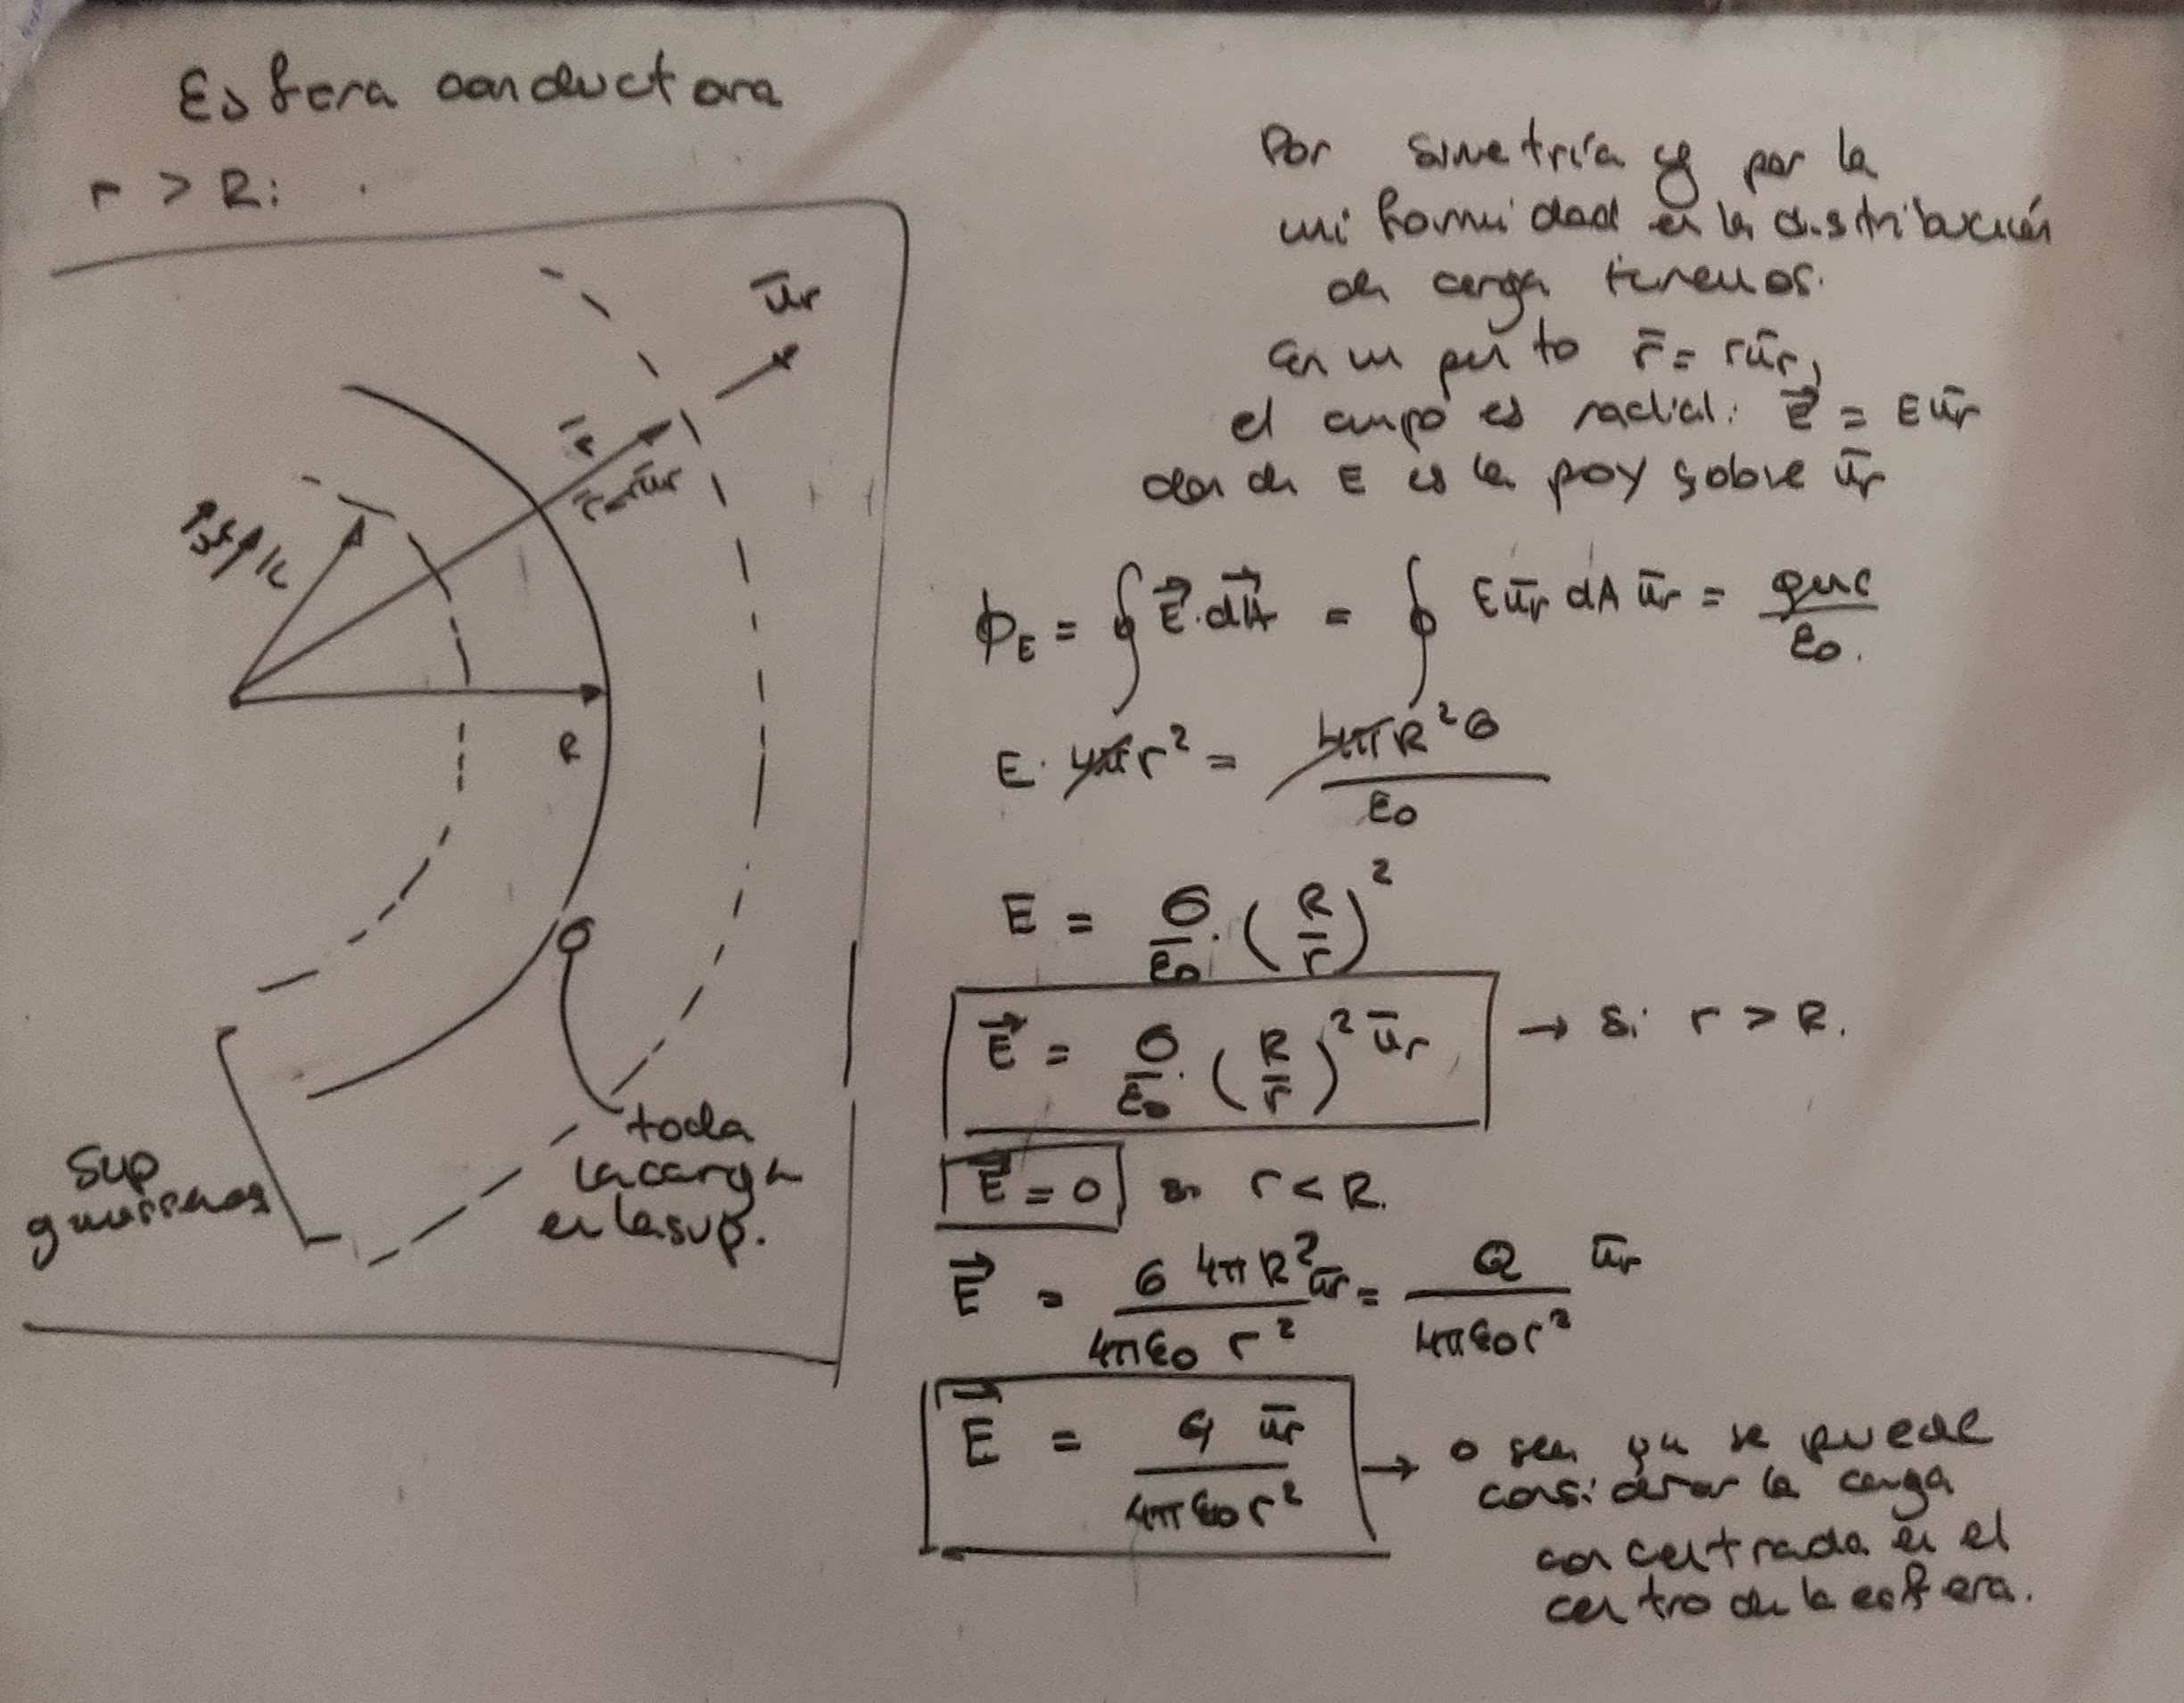 Esfera conductora
r > R:
ūr
r̄
r̄ = rūr
R
σ
toda
la carga
en la sup.
Sup
gaussianas
Por simetría y por la
uniformidad en la distribución
de carga tenemos.
en un punto r̄ = rūr,
el campo es radial: E⃗ = Eūr
donde E es la proy sobre ūr
ϕE = ∮ E⃗·dA⃗ = ∮ Eūr dA ūr = qenc/ε0.
E · 4πr² = 4πR²σ/ε0
E = σ/ε0 · (R/r)²
E⃗ = σ/ε0 · (R/r)² ūr → Si r > R.
E⃗ = 0 si r < R.
E⃗ = σ 4πR² ūr / 4πε0 r² = Q/4πε0r² ūr
E⃗ = Q ūr / 4πε0r² → o sea ya se puede
considerar la carga
concentrada en el
centro de la esfera.